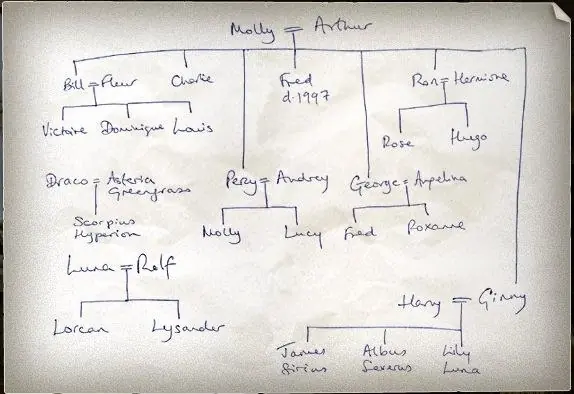 Molly = Arthur
Bill = Fleur Charlie Fred Ron = Hermione
d. 1997
Victoire Dominique Louis
Rose Hugo
Draco = Asteria Percy = Audrey George = Angelina
Greengrass
Scorpius
Hyperion
Molly Lucy Fred Roxanne
Luna = Rolf
Harry = Ginny
Lorcan Lysander
James Albus Lily
Sirius Severus Luna